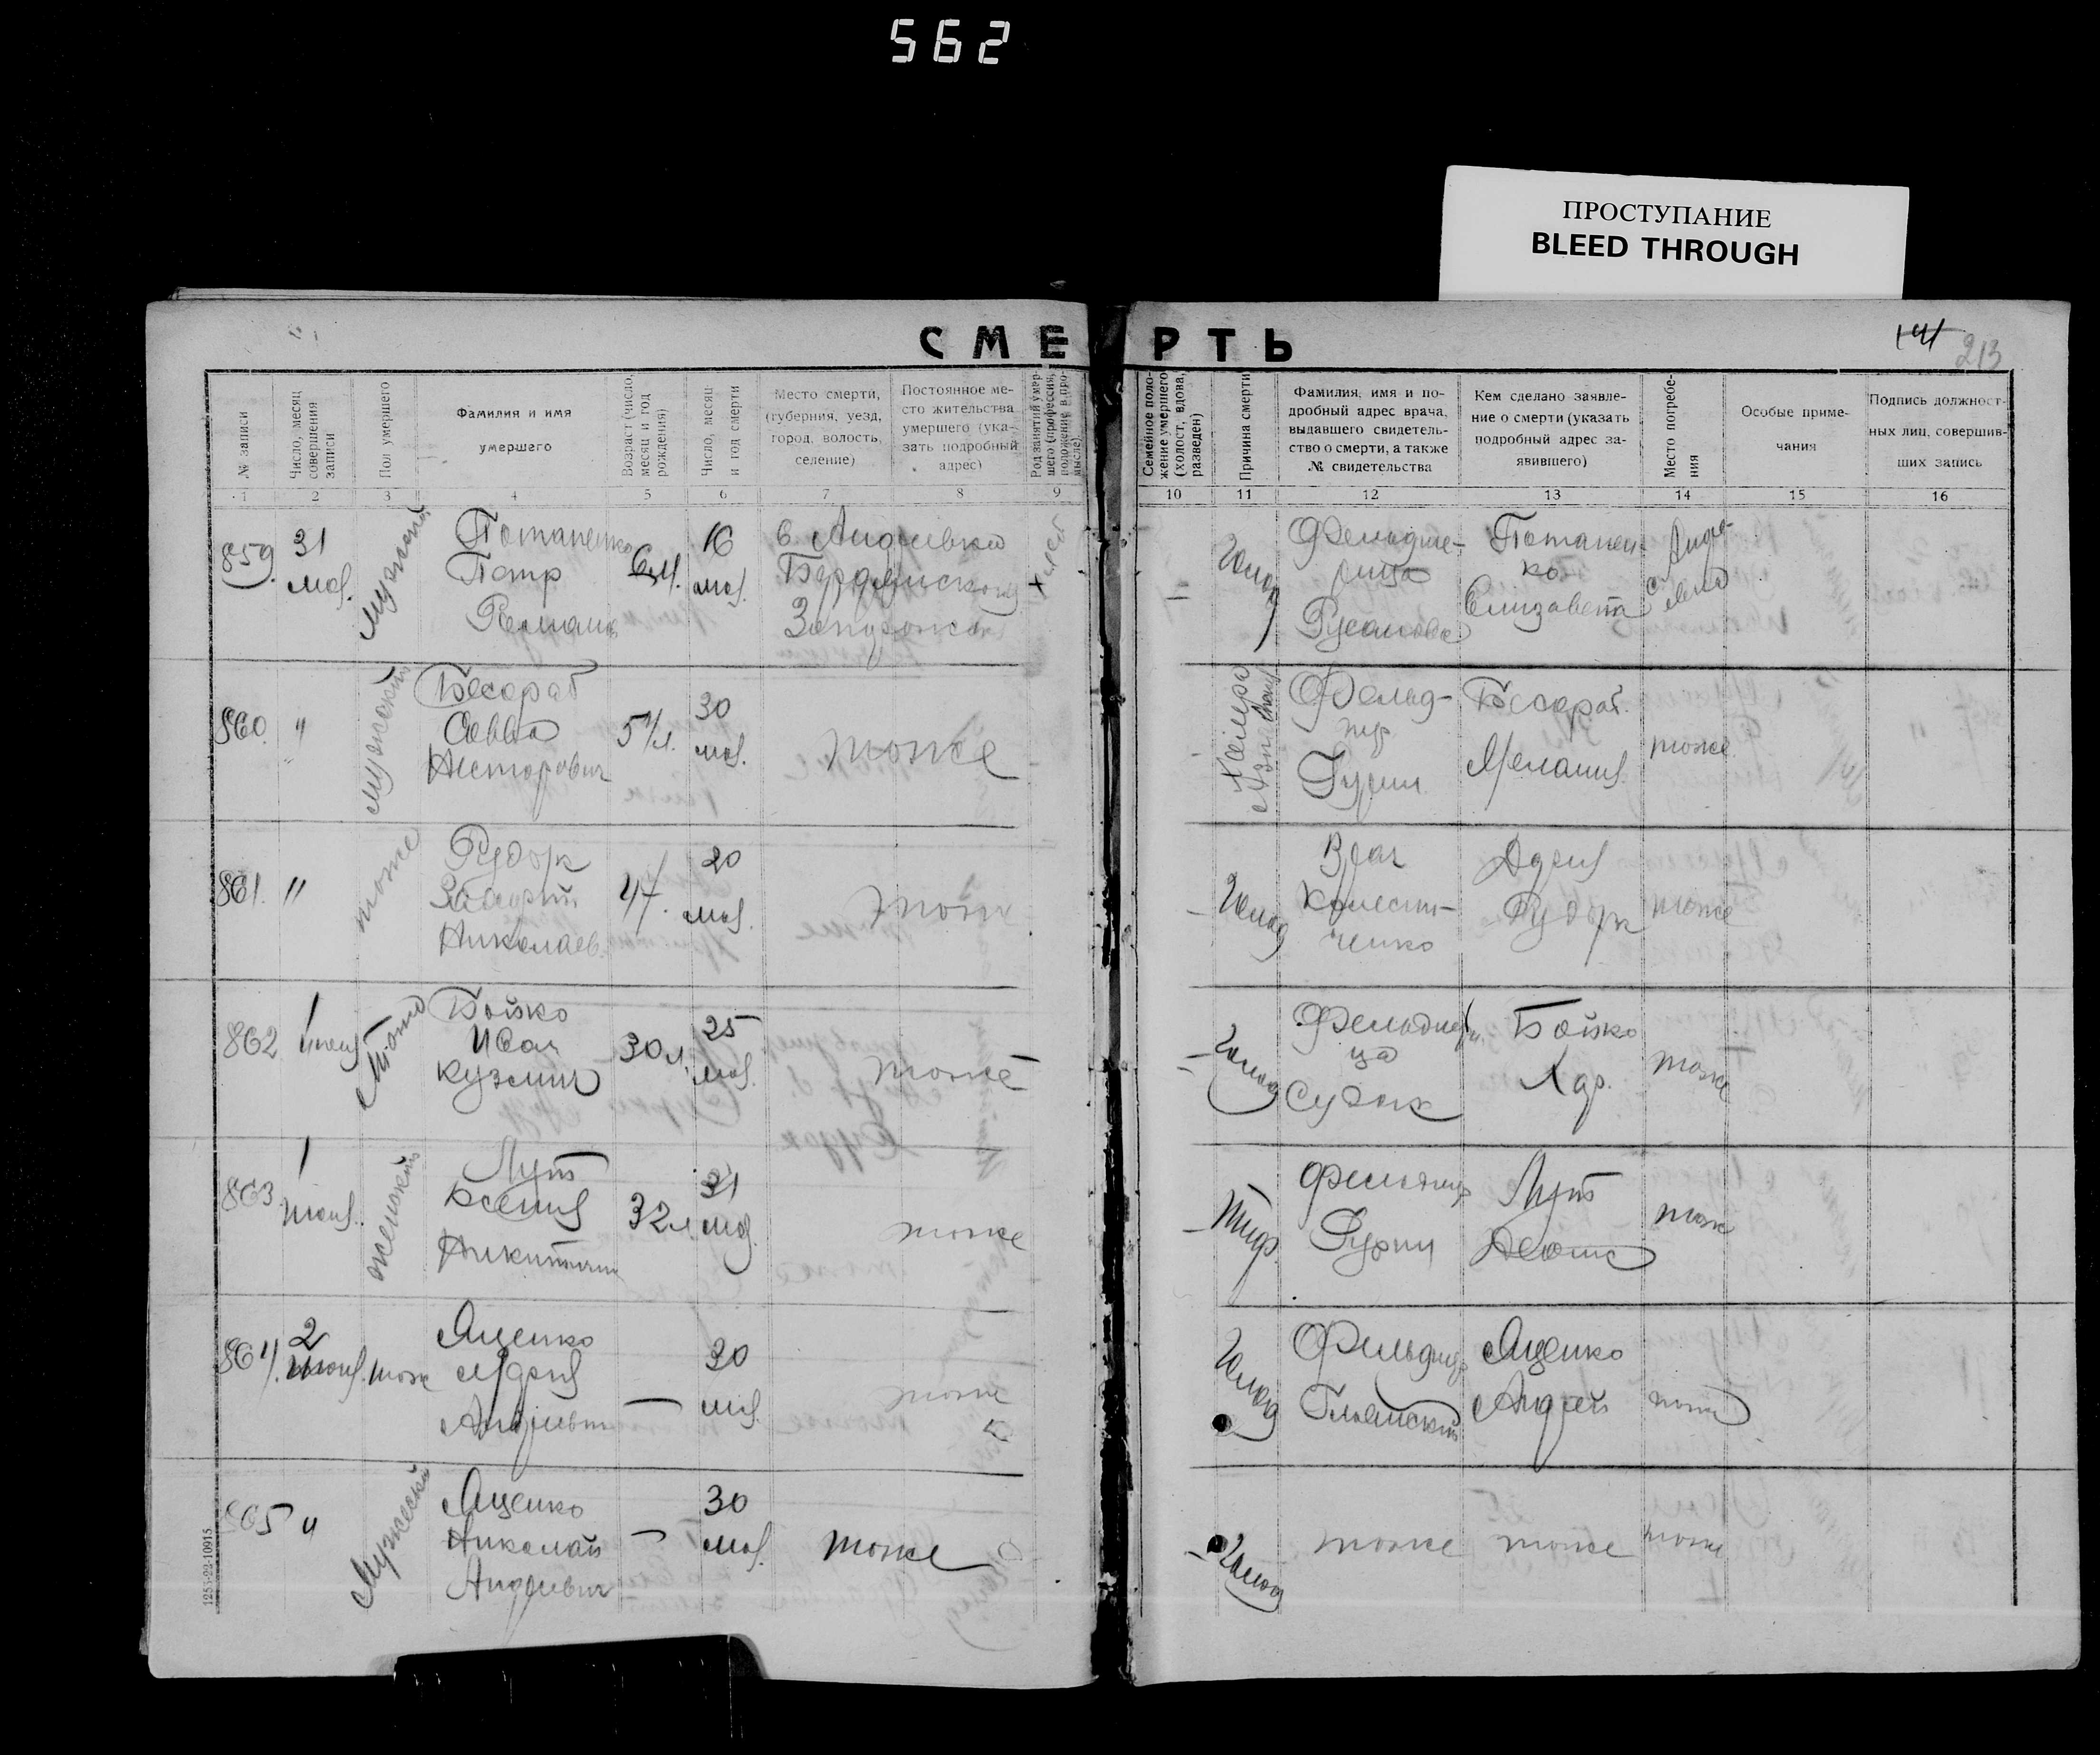 562
ПРОСТУПАНИЕ
BLEED THROUGH
СМЕРТЬ
141
213
№ записи
Число, месяц
совершения
записи
Пол умершего
Фамилия и имя
умершего
Возраст (число,
месяц и год
рождения)
Число, месяц
и год смерти
Место смерти,
(губерния, уезд,
город, волость,
селение)
Постоянное ме-
сто жительства
умершего (ука-
зать подробный
адрес)
Род занятий умер-
шего (профессия,
положение в про-
мысле)
Семейное поло-
жение умершего
(холост, вдова,
разведен)
Причина смерти
Фамилия, имя и по-
дробный адрес врача,
выдавшего свидетель-
ство о смерти, а также
№ свидетельства
Кем сделано заявле-
ние о смерти (указать
подробный адрес за-
явившего)
Место погребе-
ния
Особые приме-
чания
Подпись должност-
ных лиц, совершив-
ших запись
1 2 3 4 5 6 7 8 9 10 11 12 13 14 15 16
859.
31
мая.
мужской
Потапенко
Петр
Романов
6 м.
16
мая.
с. Андреевка
Бердянского
Запорожской
–
голод
Фельдше-
рица
Русанова
Потапен-
ко
Елизавета
с. Андре-
евка
860.
"
мужской
Бесараб
Савва
Несторович
54 л.
30
мая.
тоже
Фельд-
шер
Гурин
Бесараб.
Мелания
тоже
861.
"
тоже
Рудок
Николаев.
47.
20
мая.
тоже
–
голод
Врач
Колесни-
ченко
Рудок
тоже
862
1
июня
тоже
Бойко
Иван
Кузмич
30 л.
25
мая.
тоже
–
голод
Фельдшер
ица
Судак
Бойко
тоже
863.
1
июня.
женский
Лут
Ксения
Никитична
32 л.
31
мая.
тоже
–
Тиф.
Фельдшер
Гурин
Лут
Денис
тоже
864.
2
июня.
тоже
Яценко
Мария
Андреевна
–
30
мая.
тоже
голод
Фельдшер
Яценко
Андрей
тоже
865
"
Мужской
Яценко
Николай
Андреевич
–
30
мая.
тоже
–
голод
тоже
тоже
тоже
1253-22-10915